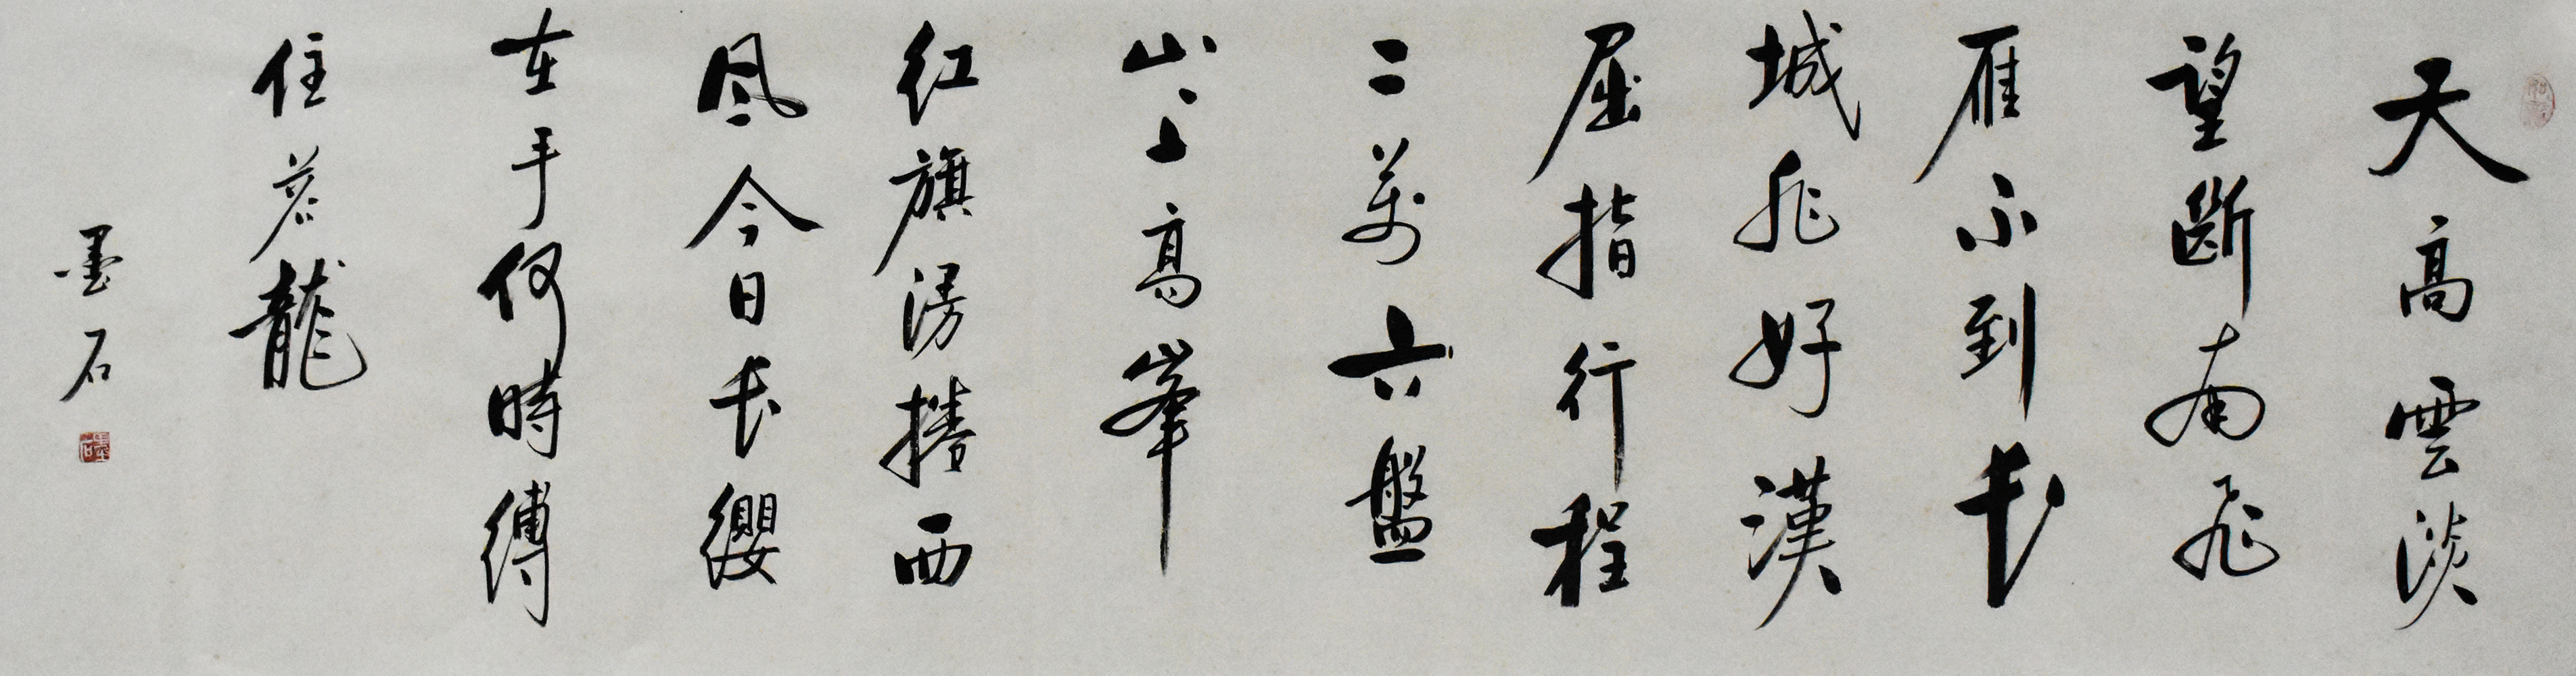 天高雲淡
望斷南飛
雁不到长
城非好漢
屈指行程
二萬六盤
山上高峯
红旗漫捲西
风今日长纓
在手何時縛
住蒼龍
墨石
墨石